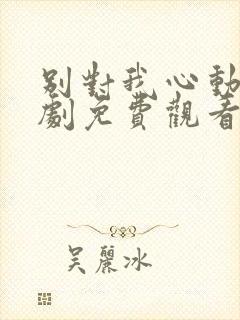 別對我心動
劇免費觀看
吴麗冰